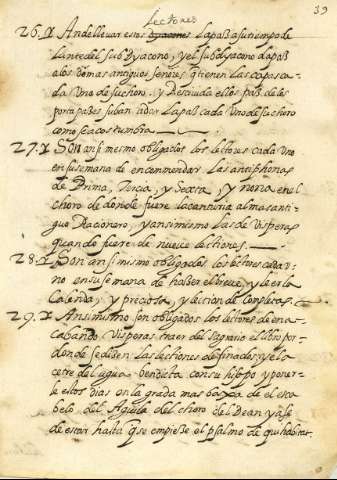 Lectores
39
26. Y Andellevar estos dyaconos la paß a su tiempo de
la nre del subdyacono, y el subdyacono da paß
alos demas antiguos señores q tienen las capas ca-
da uno de su choro. y
porta paßes suban a dar la paß cada uno de su choro
como se acostumbra
27. Y Son ansi mesmo obligados los lectores cada uno
en su semana de encommendar las antiphonas
de Prima, Tercia, y Sexta, y nona en el
choro de donde fuere la cantoria al mas anti-
guo Racionero, y ansimismo las de Visperas
quando fuere de nueve lectiones.
28. Y Son ansi mismo obligados los lectores cada u-
no en su semana de haßer el breve, y leer la
Calenda, y preciosa, y lection de Completas.
29. Y Ansimismo son obligados los lectores de en a-
cabando Visperas traer del Sagrario el libro por-
donde se diçen las lectiones de finados, y la
cetre del agua bendicta con su hisopo y poner-
le estos dias en la grada mas baxa de el esca-
belo del Aguila del choro del Dean y a se
de estar hasta que empieße el psalmo de qui habitat.